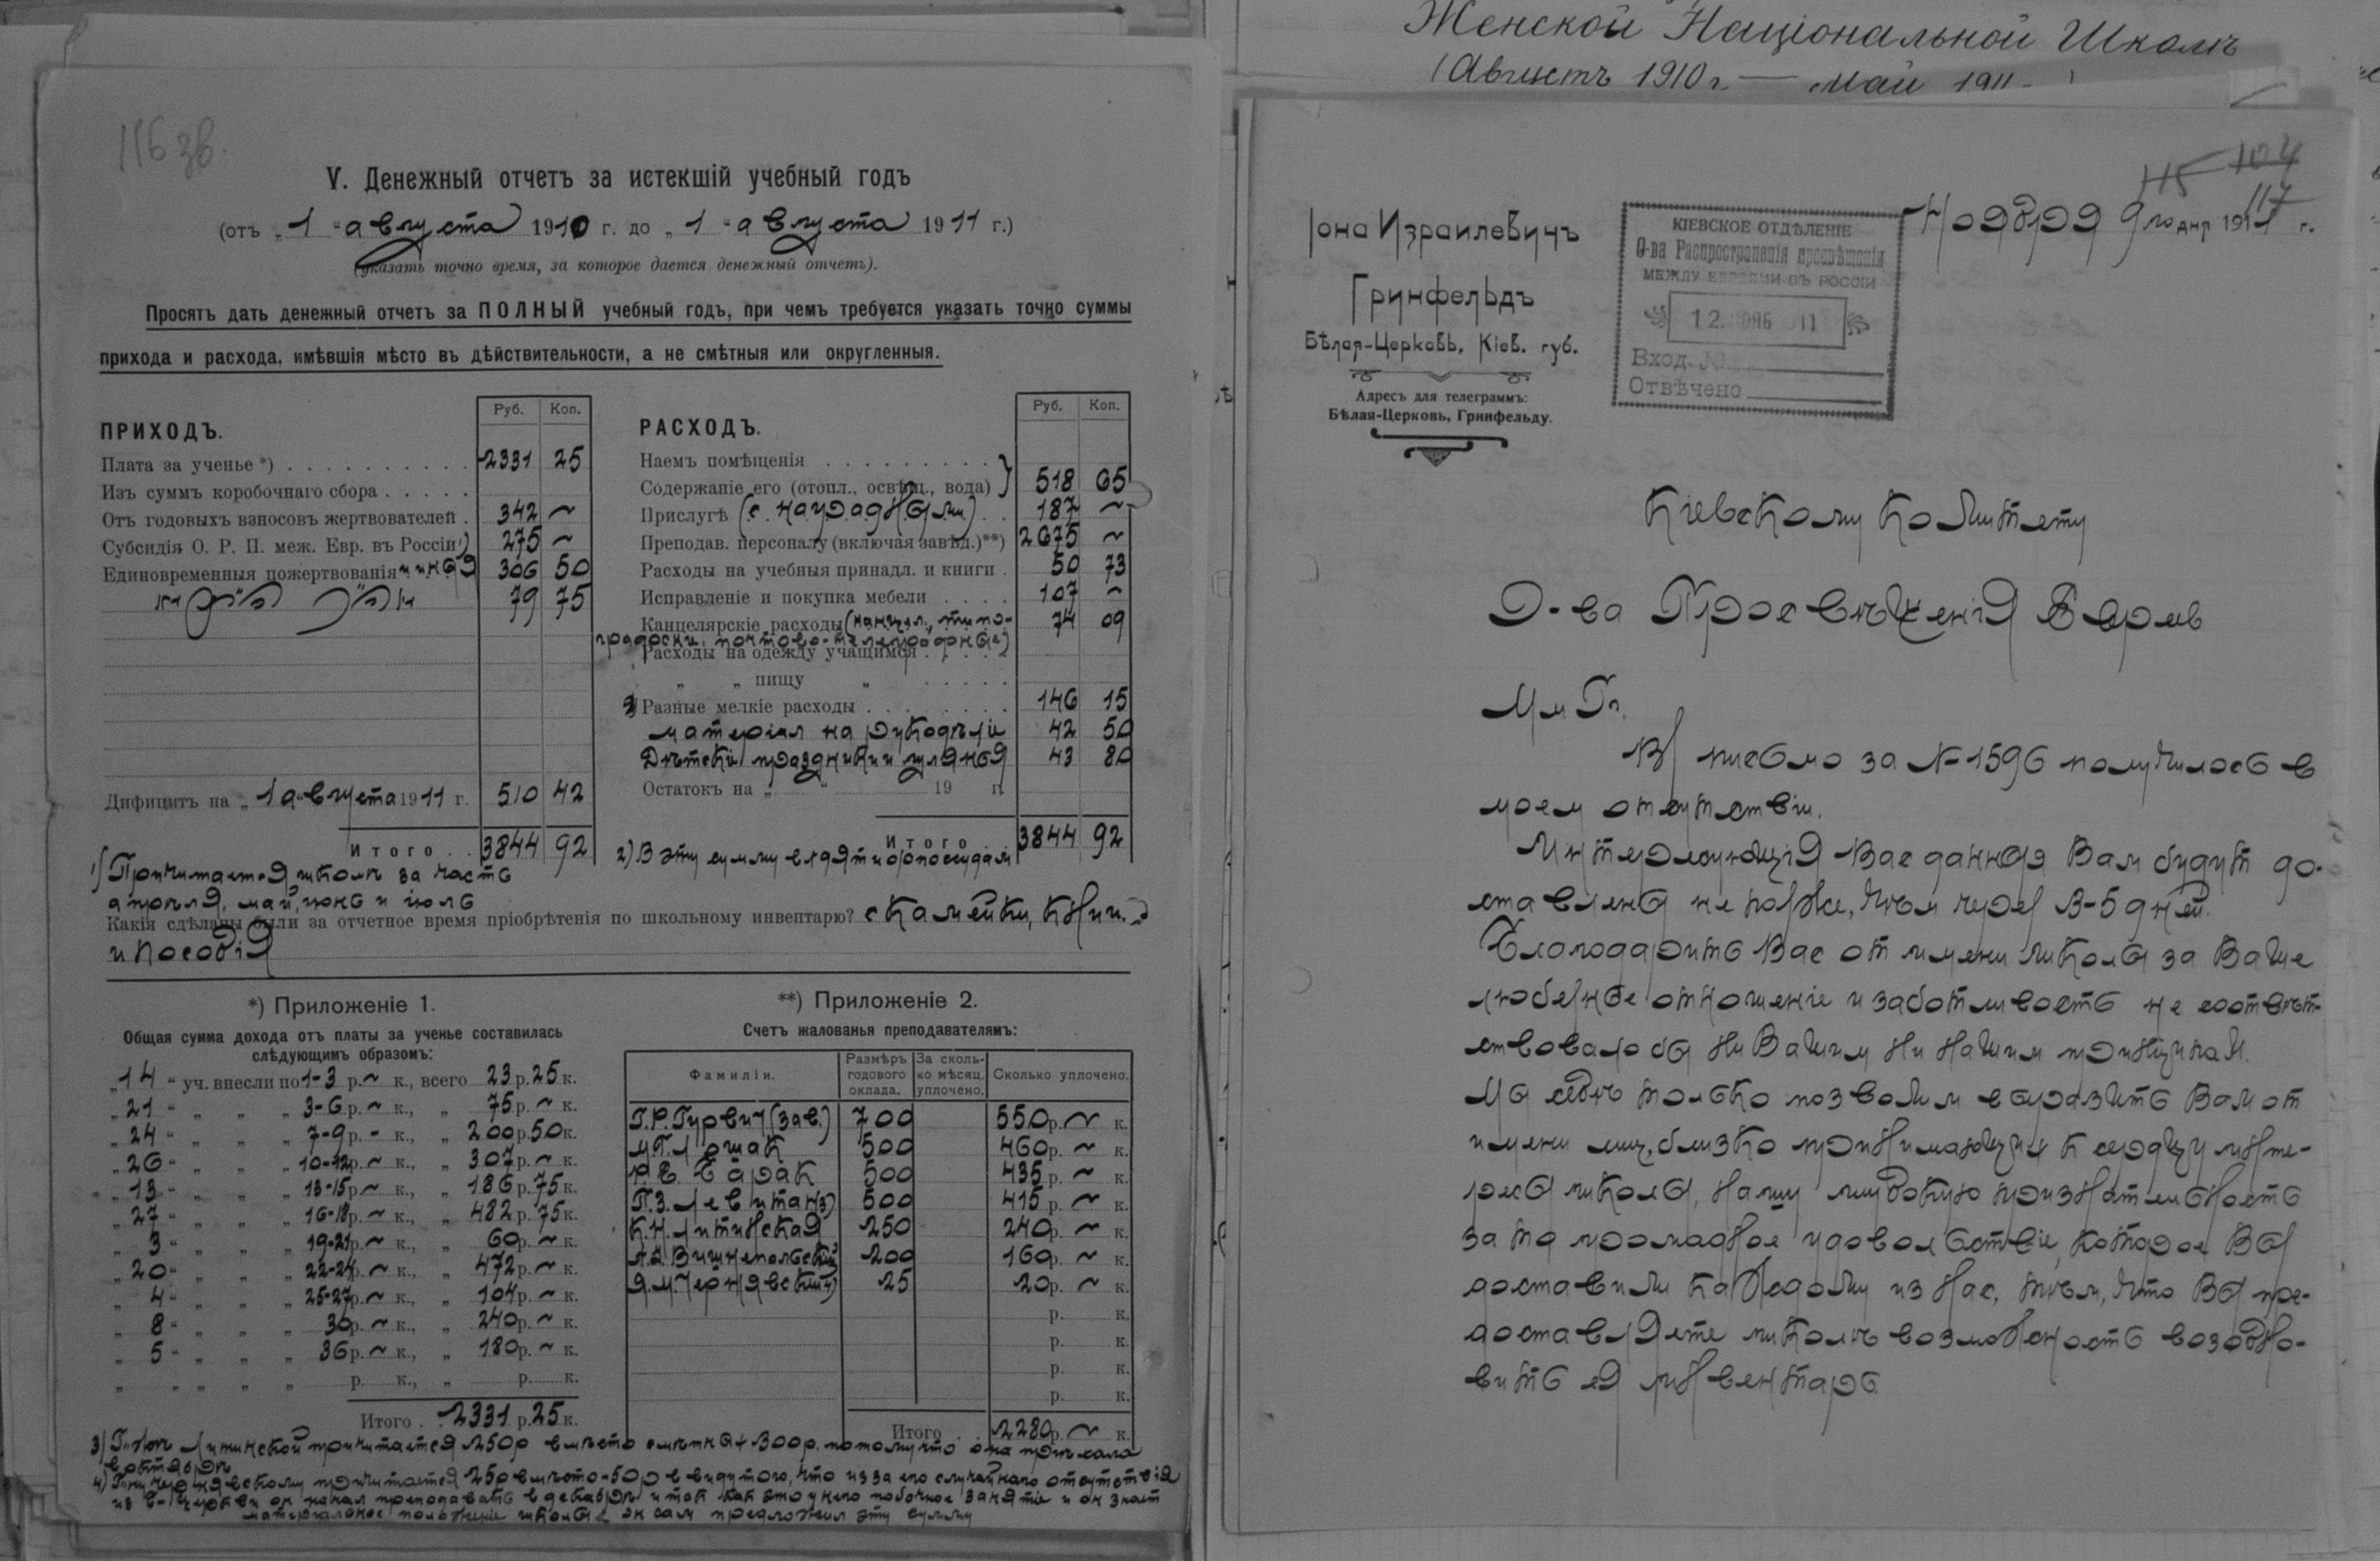 Женской Національной Школѣ
(Августъ 1910 г. — Май 1911
116 зв.
V. Денежный отчетъ за истекшій учебный годъ
(отъ „1“ августа 1910 г. до „1“ августа 1911 г.)
(указать точно время, за которое дается денежный отчетъ).
Просятъ дать денежный отчетъ за ПОЛНЫЙ учебный годъ, при чемъ требуется указать точно суммы
прихода и расхода, имѣвшія мѣсто въ дѣйствительности, а не смѣтныя или округленныя.
ПРИХОДЪ. Руб. Коп.
Плата за ученье *) 2331 25
Изъ суммъ коробочнаго сбора
Отъ годовыхъ взносовъ жертвователей 342 ~
Субсидія О. Р. П. меж. Евр. въ Россіи 1) 275 ~
Единовременныя пожертвованія 306 50
79 75
Дифицитъ на „1“ августа 1911 г. 510 42
Итого 3844 92
РАСХОДЪ. Руб. Коп.
Наемъ помѣщенія
Содержаніе его (отопл., освѣщ., вода) } 518 65
Прислугѣ (с наградными) 187 ~
Преподав. персоналу (включая завѣд.) **) 2675 ~
Расходы на учебныя принадл. и книги 50 73
Исправленіе и покупка мебели 107 ~
Канцелярскіе расходы (канцел., типо- 74 09
графскі, почтово-телеграфные)
Расходы на одежду учащимся
„ „ пищу „
2) Разные мелкіе расходы 146 15
матеріал на рукодѣліе 42 50
Дѣтскіе праздники и гулянья 43 80
Остатокъ на „ “ 19 г.
Итого 3844 92
1) Причитается школѣ за часть
апрѣля, май, іюнь и іюль
2) В эту сумму входят и
Какія сдѣланы были за отчетное время пріобрѣтенія по школьному инвентарю? скамейки, книги
и пособія
*) Приложеніе 1.
Общая сумма дохода отъ платы за ученье составилась
слѣдующимъ образомъ:
„14“ уч. внесли по 1-3 р. ~ к., всего 23 р. 25 к.
„21“ „ „ „ 3-6 р. ~ к., „ 75 р. ~ к.
„24“ „ „ „ 7-9 р. - к., „ 200 р. 50 к.
„26“ „ „ „ 10-12 р. ~ к., „ 307 р. ~ к.
„13“ „ „ „ 13-15 р. ~ к., „ 186 р. 75 к.
„27“ „ „ „ 16-18 р. ~ к., „ 482 р. 75 к.
„3“ „ „ „ 19-21 р. ~ к., „ 60 р. ~ к.
„20“ „ „ „ 22-24 р. ~ к., „ 472 р. ~ к.
„4“ „ „ „ 25-27 р. ~ к., „ 104 р. ~ к.
„8“ „ „ „ 30 р. ~ к., „ 240 р. ~ к.
„5“ „ „ „ 36 р. ~ к., „ 180 р. ~ к.
„ „ „ „ „ р. к., „ р. к.
Итого 2331 р. 25 к.
**) Приложеніе 2.
Счетъ жалованья преподавателямъ:
Фамиліи. Размѣръ годового оклада. За сколь-ко мѣсяц. уплочено. Сколько уплочено.
Г. Р. Гурович (зав.) 700 550 р. ~ к.
М. Г. Лошак 500 460 р. ~ к.
Р. Е. Барак 500 435 р. ~ к.
П. З. Левитан 500 415 р. ~ к.
К. Н. Литинская 3) 250 240 р. ~ к.
Вишнепольский 200 160 р. ~ к.
Я. М. Чернявский 4) 25 20 р. ~ к.
р. к.
р. к.
р. к.
р. к.
Итого 2280 р. ~ к.
3) Г-жѣ Литинской причитается 250 р вмѣсто смѣтных 300 р. потому что она пріѣхала
в октябрѣ
4) Г-ну Чернявскому причитается 25 р вмѣсто 50 р в виду того, что из за его случайнаго отсутствія
из Б-Церкви он начал преподавать в декабрѣ и так как это у него побочное занятіе и он знает
матеріальное положеніе школы, он сам предложил эту сумму
115 104
117
Іона Израилевичъ
Гринфельдъ
Бѣлая-Церковь, Кіев. губ.
Адресъ для телеграммъ:
Бѣлая-Церковь, Гринфельду.
КІЕВСКОЕ ОТДѢЛЕНІЕ
О-ва Распространенія просвѣщенія
МЕЖДУ ЕВРЕЯМИ ВЪ РОССІИ
12. НОЯБ 11
Вход. №
Отвѣчено
Ноября 9го дня 1911 г.
Кіевскому Комитету
О-ва Просвѣщенія Евреев
Мм Гг.
В/ письмо за № 1596 получилось в
моем отсутствіи.
Интересующія Вас данныя Вам будут до-
ставлены не позже, чѣм через 3-5 дней.
Благодарить Вас от имени школы за Ваше
любезное отношеніе и заботливость не соотвѣт-
ствовало бы ни Вашим ни нашим принципам.
Мы себѣ только позволим выразить Вам от
имени лиц, близко принимающих к сердцу инте-
ресы школы, нашу глубокую признательность
за то громадное удовольствіе, которое Вы
доставили каждому из нас, тѣм, что Вы пре-
доставляете школѣ возможность возобно-
вить ея инвентарь